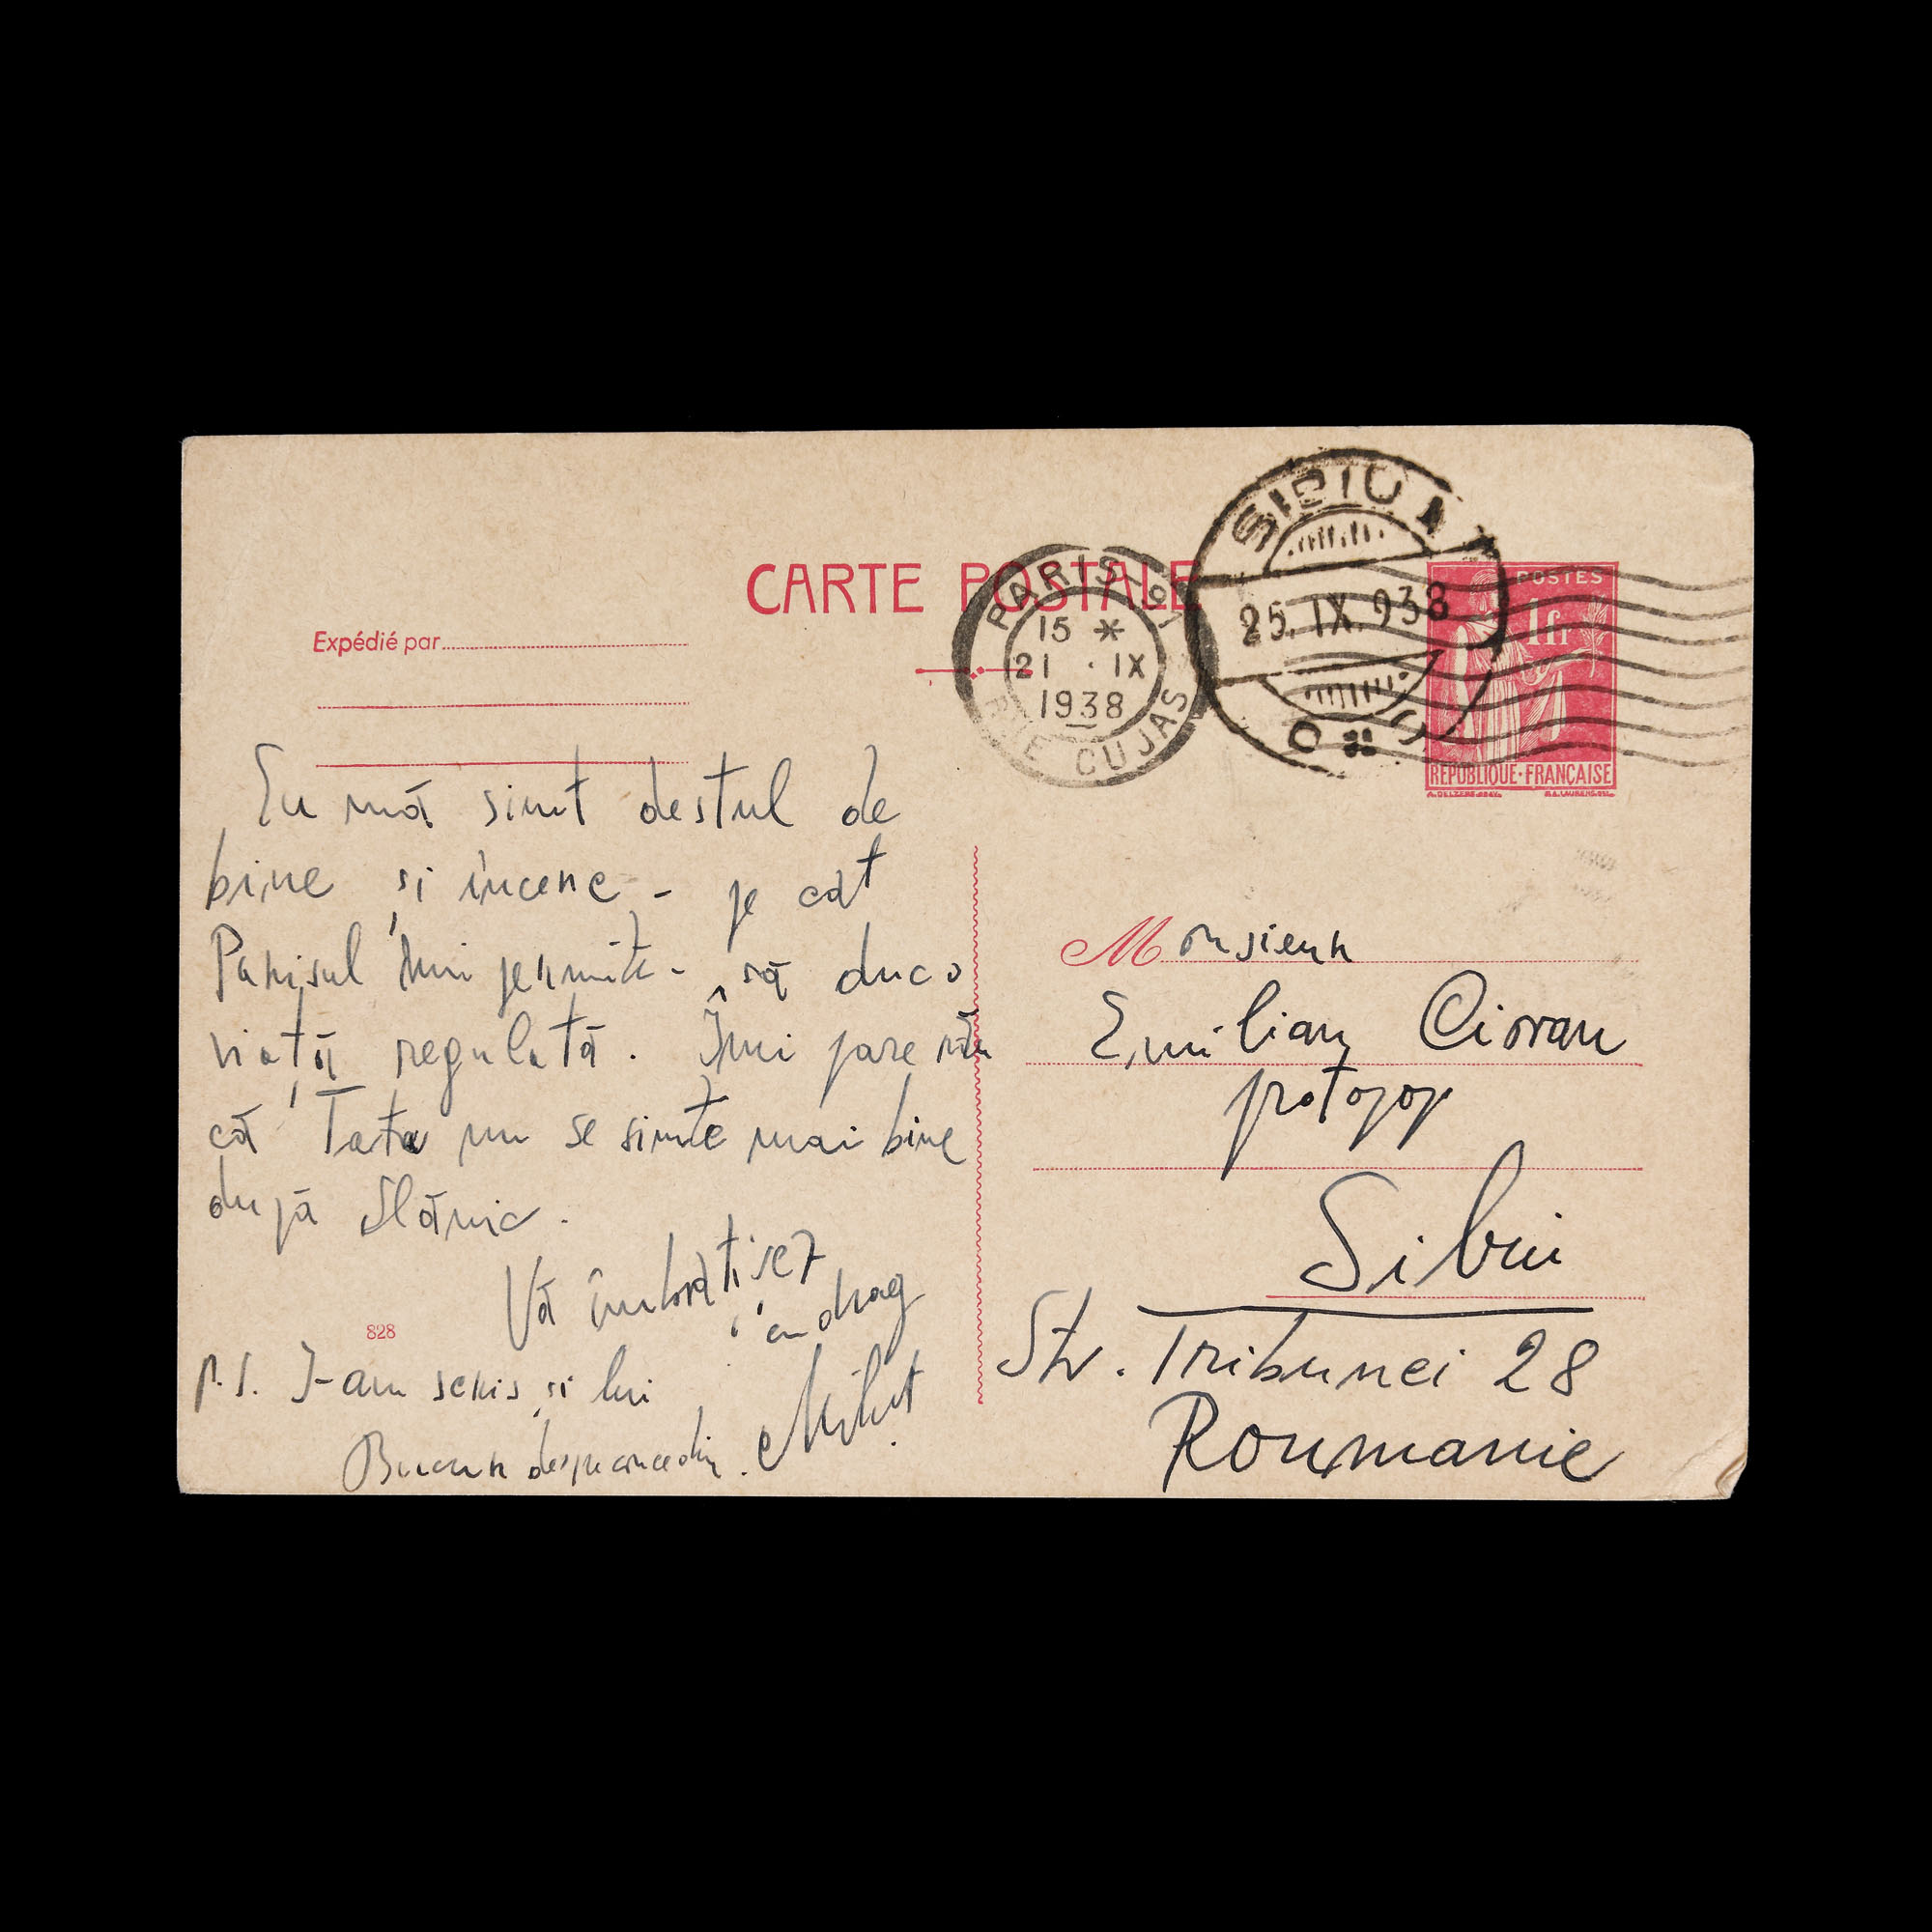 CARTE POSTALE
Expédié par
PARIS
15 *
21 · IX
1938
RUE CUJAS
SIBIU
25. IX. 938
POSTES
1fr
REPUBLIQUE·FRANÇAISE
Eu mă simt destul de
bine și încerc - pe cât
Parisul îmi permite - să duc o
viață regulată. Îmi pare rău
că Tata nu se simte mai bine
după Slănic.
Vă îmbrățișez
cu drag
828
P.S. I-am scris și lui
Bucur despre concediu.
Miluț
Monsieur
Emilian Cioran
protopop
Sibiu
Str. Tribunei 28
Roumanie